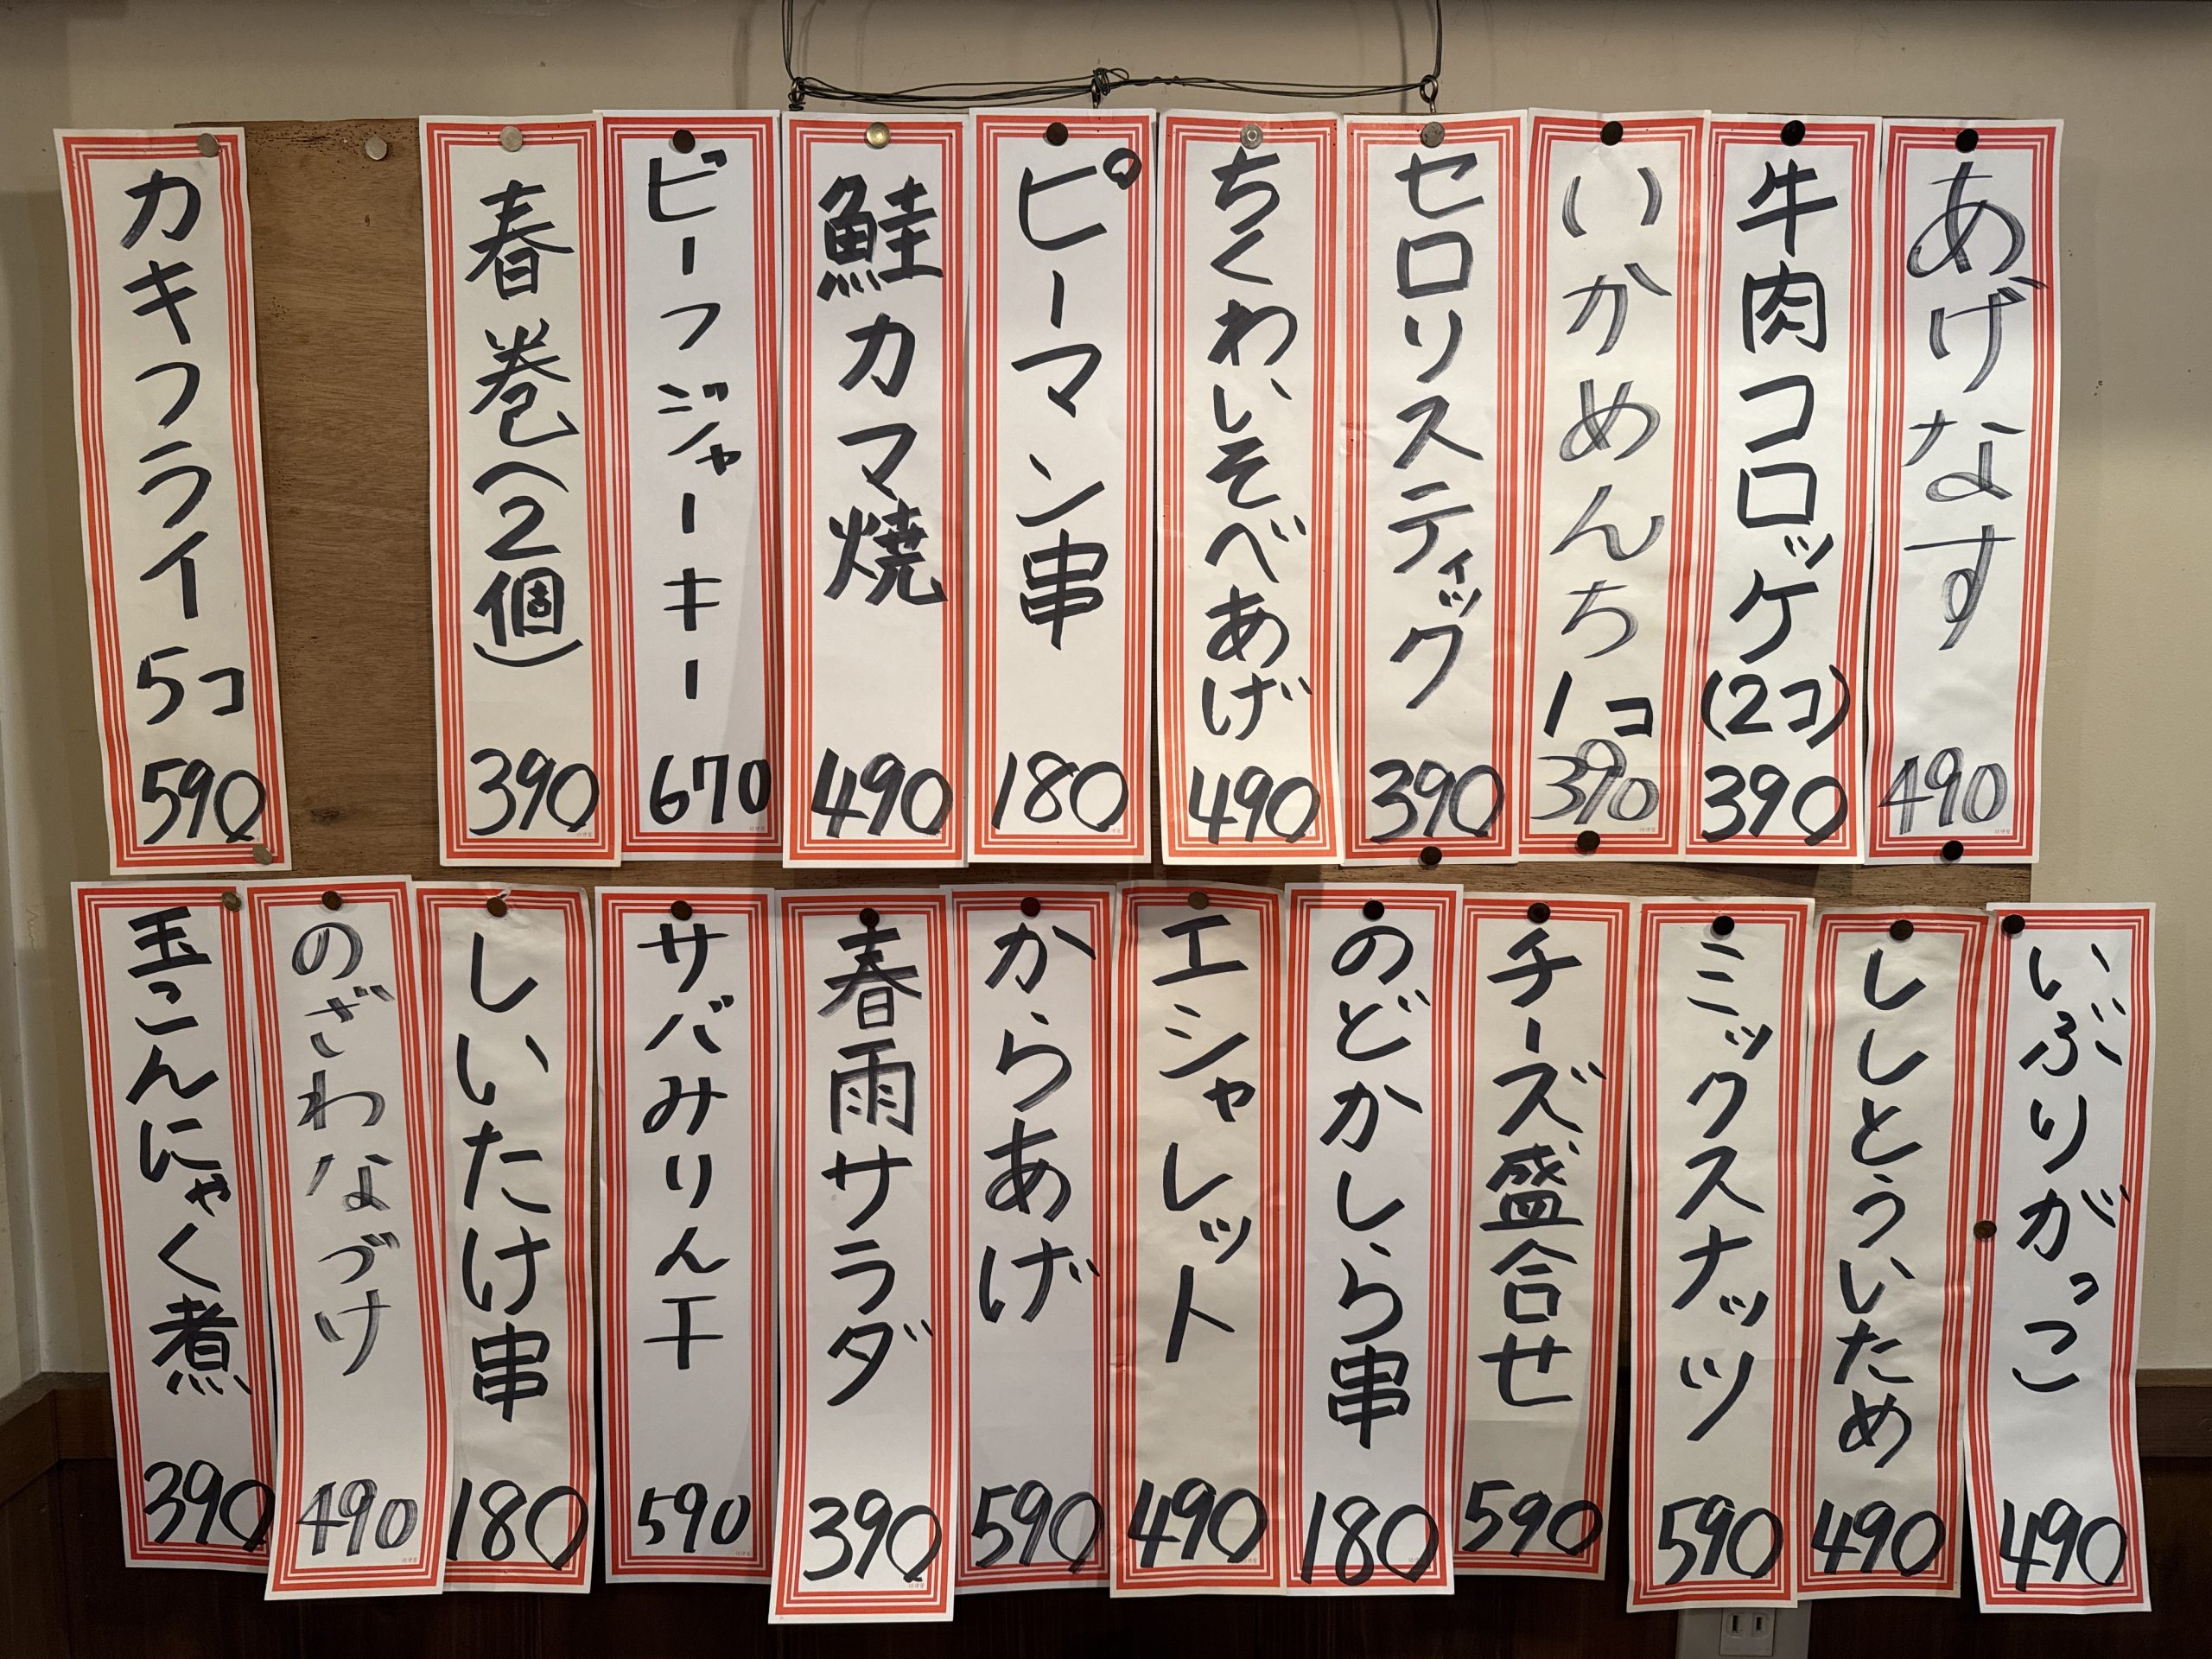 あげなす 490
牛肉コロッケ(2コ) 390
いかめんち 1コ 390
セロリスティック 390
ちくわいそべあげ 490
ピーマン串 180
鮭カマ焼 490
ビーフジャーキー 670
春巻(2個) 390
カキフライ 5コ 590
いぶりがっこ 490
ししとういため 490
ミックスナッツ 590
チーズ盛合せ 590
のどかしら串 180
エシャレット 490
からあげ 590
春雨サラダ 390
サバみりん干 590
しいたけ串 180
のざわなづけ 490
玉こんにゃく煮 390